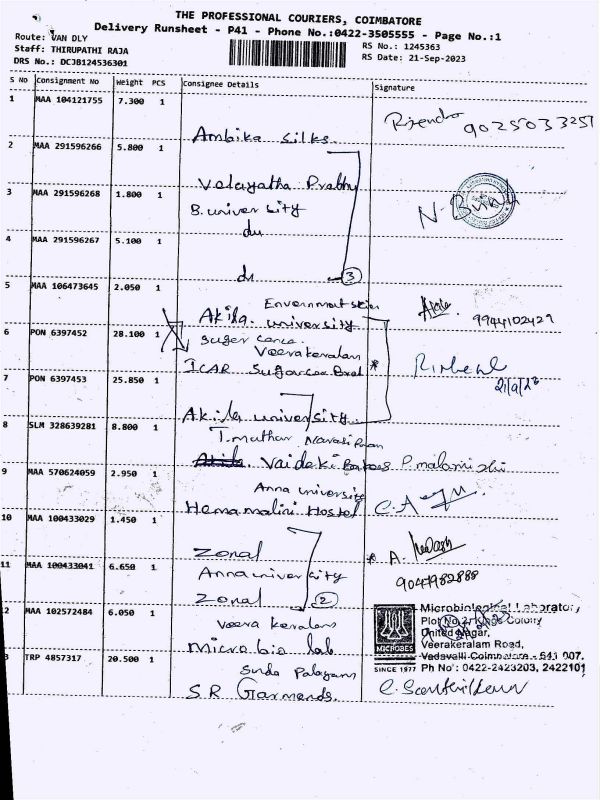 THE PROFESSIONAL COURIERS, COIMBATORE
Delivery Runsheet - P41 - Phone No.:0422-3505555 - Page No.:1
Route: VAN DLY
Staff: THIRUPATHI RAJA
DRS No.: DCJB124536301
RS No.: 1245363
RS Date: 21-Sep-2023
S NO Consignment No Weight PCS Consignee Details Signature
1 MAA 104121755 7.300 1
Ambika Silks 9025033251
2 MAA 291596266 5.800 1
Velayatha Prabhu
3 MAA 291596268 1.800 1
B. university
du
4 MAA 291596267 5.100 1
du 3
5 MAA 106473645 2.050 1
Akila. university 9944102429
6 PON 6397452 28.100 1
Suger cane
Veerakeralam
ICAR Sugarcane
21/9/23
7 PON 6397453 25.850 1
Akila university
8 SLM 328639281 8.800 1
T. mathar
Vaideki
9 MAA 570624059 2.950 1
Anna university
Hemamalini Hostel
10 MAA 100433029 1.450 1
Zonal
11 MAA 100433041 6.650 1
Anna university 9047982888
Zonal 2
12 MAA 102572484 6.050 1
Veera keralam
micro bio lab
Microbiological Laboratory
Plot No.2, Kings Colony
United Nagar,
Veerakeralam Road,
Vadavalli Coimbatore - 641 007.
Ph No: 0422-2423203, 2422101
MICROBES
SINCE 1977
TRP 4857317 20.500 1
Sunda Palayam
S.R Garments.